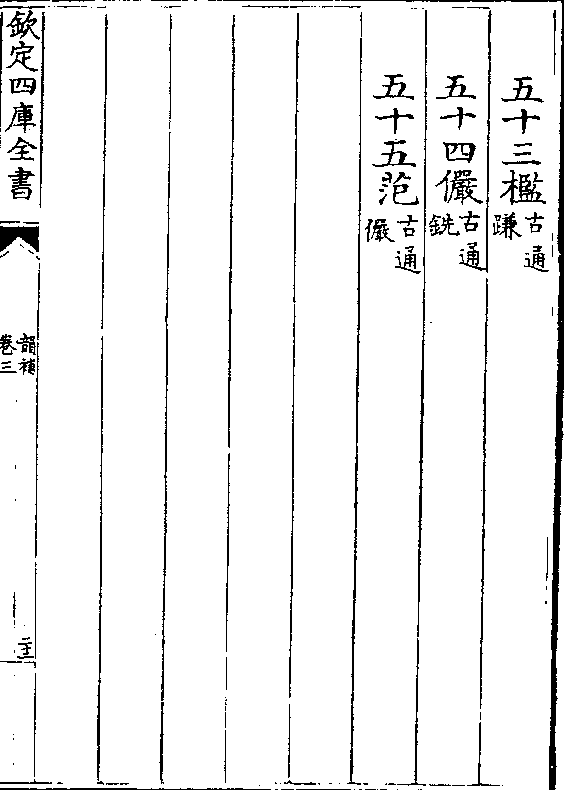 五十三檻古通䠣
五十四儼古通銑
五十五范古通儼
欽定四庫全書
韻補
卷三